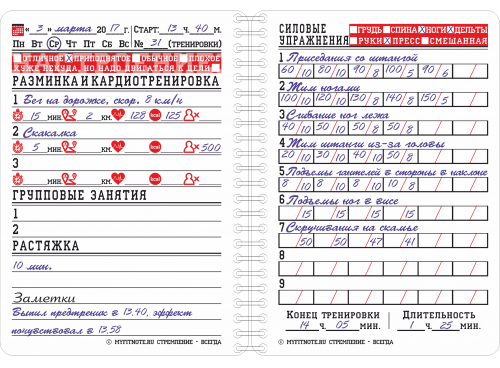 « 3 » марта 20 17 г. СТАРТ: 13 ч. 40 м.
ПН ВТ СР ЧТ ПТ СБ ВС № 31 (ТРЕНИРОВКИ)
ОТЛИЧНОЕ ПРИПОДНЯТОЕ ОБЫЧНОЕ ПЛОХОЕ
ХУЖЕ НЕКУДА, НО НАДО ДВИГАТЬСЯ К ЦЕЛИ
РАЗМИНКА И КАРДИОТРЕНИРОВКА
1 Бег на дорожке, скор. 8 км/ч
15 мин. 2 км. 128 kcal 125
2 Скакалка
5 мин. км. kcal 500
3
мин. км. kcal
ГРУППОВЫЕ ЗАНЯТИЯ
1
2
РАСТЯЖКА
10 мин.
Заметки
Выпил предтреник в 13.40, эффект
почувствовал в 13.58
© MYFITNOTE.RU СТРЕМЛЕНИЕ - ВСЕГДА
СИЛОВЫЕ УПРАЖНЕНИЯ
ГРУДЬ СПИНА НОГИ ДЕЛЬТЫ
РУКИ ПРЕСС СМЕШАННАЯ
1 Приседания со штангой
60/10 80/10 90/8 100/5 90/6
2 Жим ногами
100/10 120/10 130/8 140/8 150/5
3 Сгибание ног лежа
40/10 50/10 50/8 50/8
4 Жим штанги из-за головы
20/10 30/10 40/10 50/8
5 Подъемы гантелей в стороны в наклоне
8/10 8/10 8/10 10/8
6 Подъемы ног в висе
/15 /15 /15 /15
7 Скручивания на скамье
/50 /50 /47 /41
8
9
КОНЕЦ ТРЕНИРОВКИ ДЛИТЕЛЬНОСТЬ
14 Ч. 05 МИН. 1 Ч. 25 МИН.
© MYFITNOTE.RU СТРЕМЛЕНИЕ - ВСЕГДА